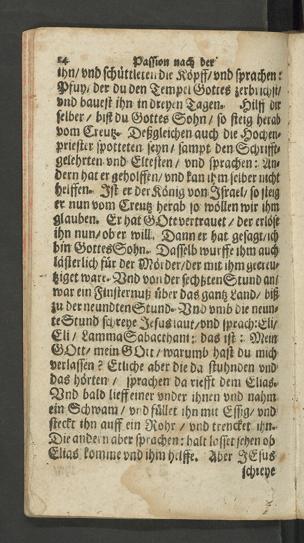 14 Passion nach der
ihn/ vnd schüttleten die Köpff/ vnd sprachen:
Pfuy, der du den Tempel Gottes zerbrichst/
vnd bauest ihn in dreyen Tagen. Hilff dir
selber/ bist du Gottes Sohn/ so steig herab
vom Creutz. Deßgleichen auch die Hochen-
priester spotteten seyn/ sampt den Schrifft-
gelehrten vnd Eltesten/ vnd sprachen: An-
dern hat er geholffen/ vnd kan ihm selber nicht
helffen. Ist er der König von Israel/ so steig
er nun vom Creutz herab so wöllen wir ihm
glauben. Er hat GOtt vertrauet/ der erlöse
ihn nun/ ob er will. Dann er hat gesagt/ ich
bin Gottes Sohn. Dasselb wurffe ihm auch
lästerlich für der Mörder/ der mit ihm gecreu-
tziget ware. Vnd von der sechsten Stund an/
war ein Finsternuß über das gantz Land/ biß
zu der neundten Stund. Vnd vmb die neun-
te Stund schreye Jesus laut/ vnd sprach: Eli/
Eli/ Lamma Sabacthani: das ist: Mein
GOtt/ mein GOtt/ warumb hast du mich
verlassen? Etliche aber die da stuhnden vnd
das hörten/ sprachen da rieff dem Elias.
Vnd bald lieff einer vnder ihnen vnd nahm
ein Schwam/ vnd füllet ihn mit Essig/ vnd
steckt ihn auff ein Rohr/ vnd trencket ihn.
Die andern aber sprachen: halt lasset sehen ob
Elias komme vnd ihm helffe. Aber JEsus
schreye